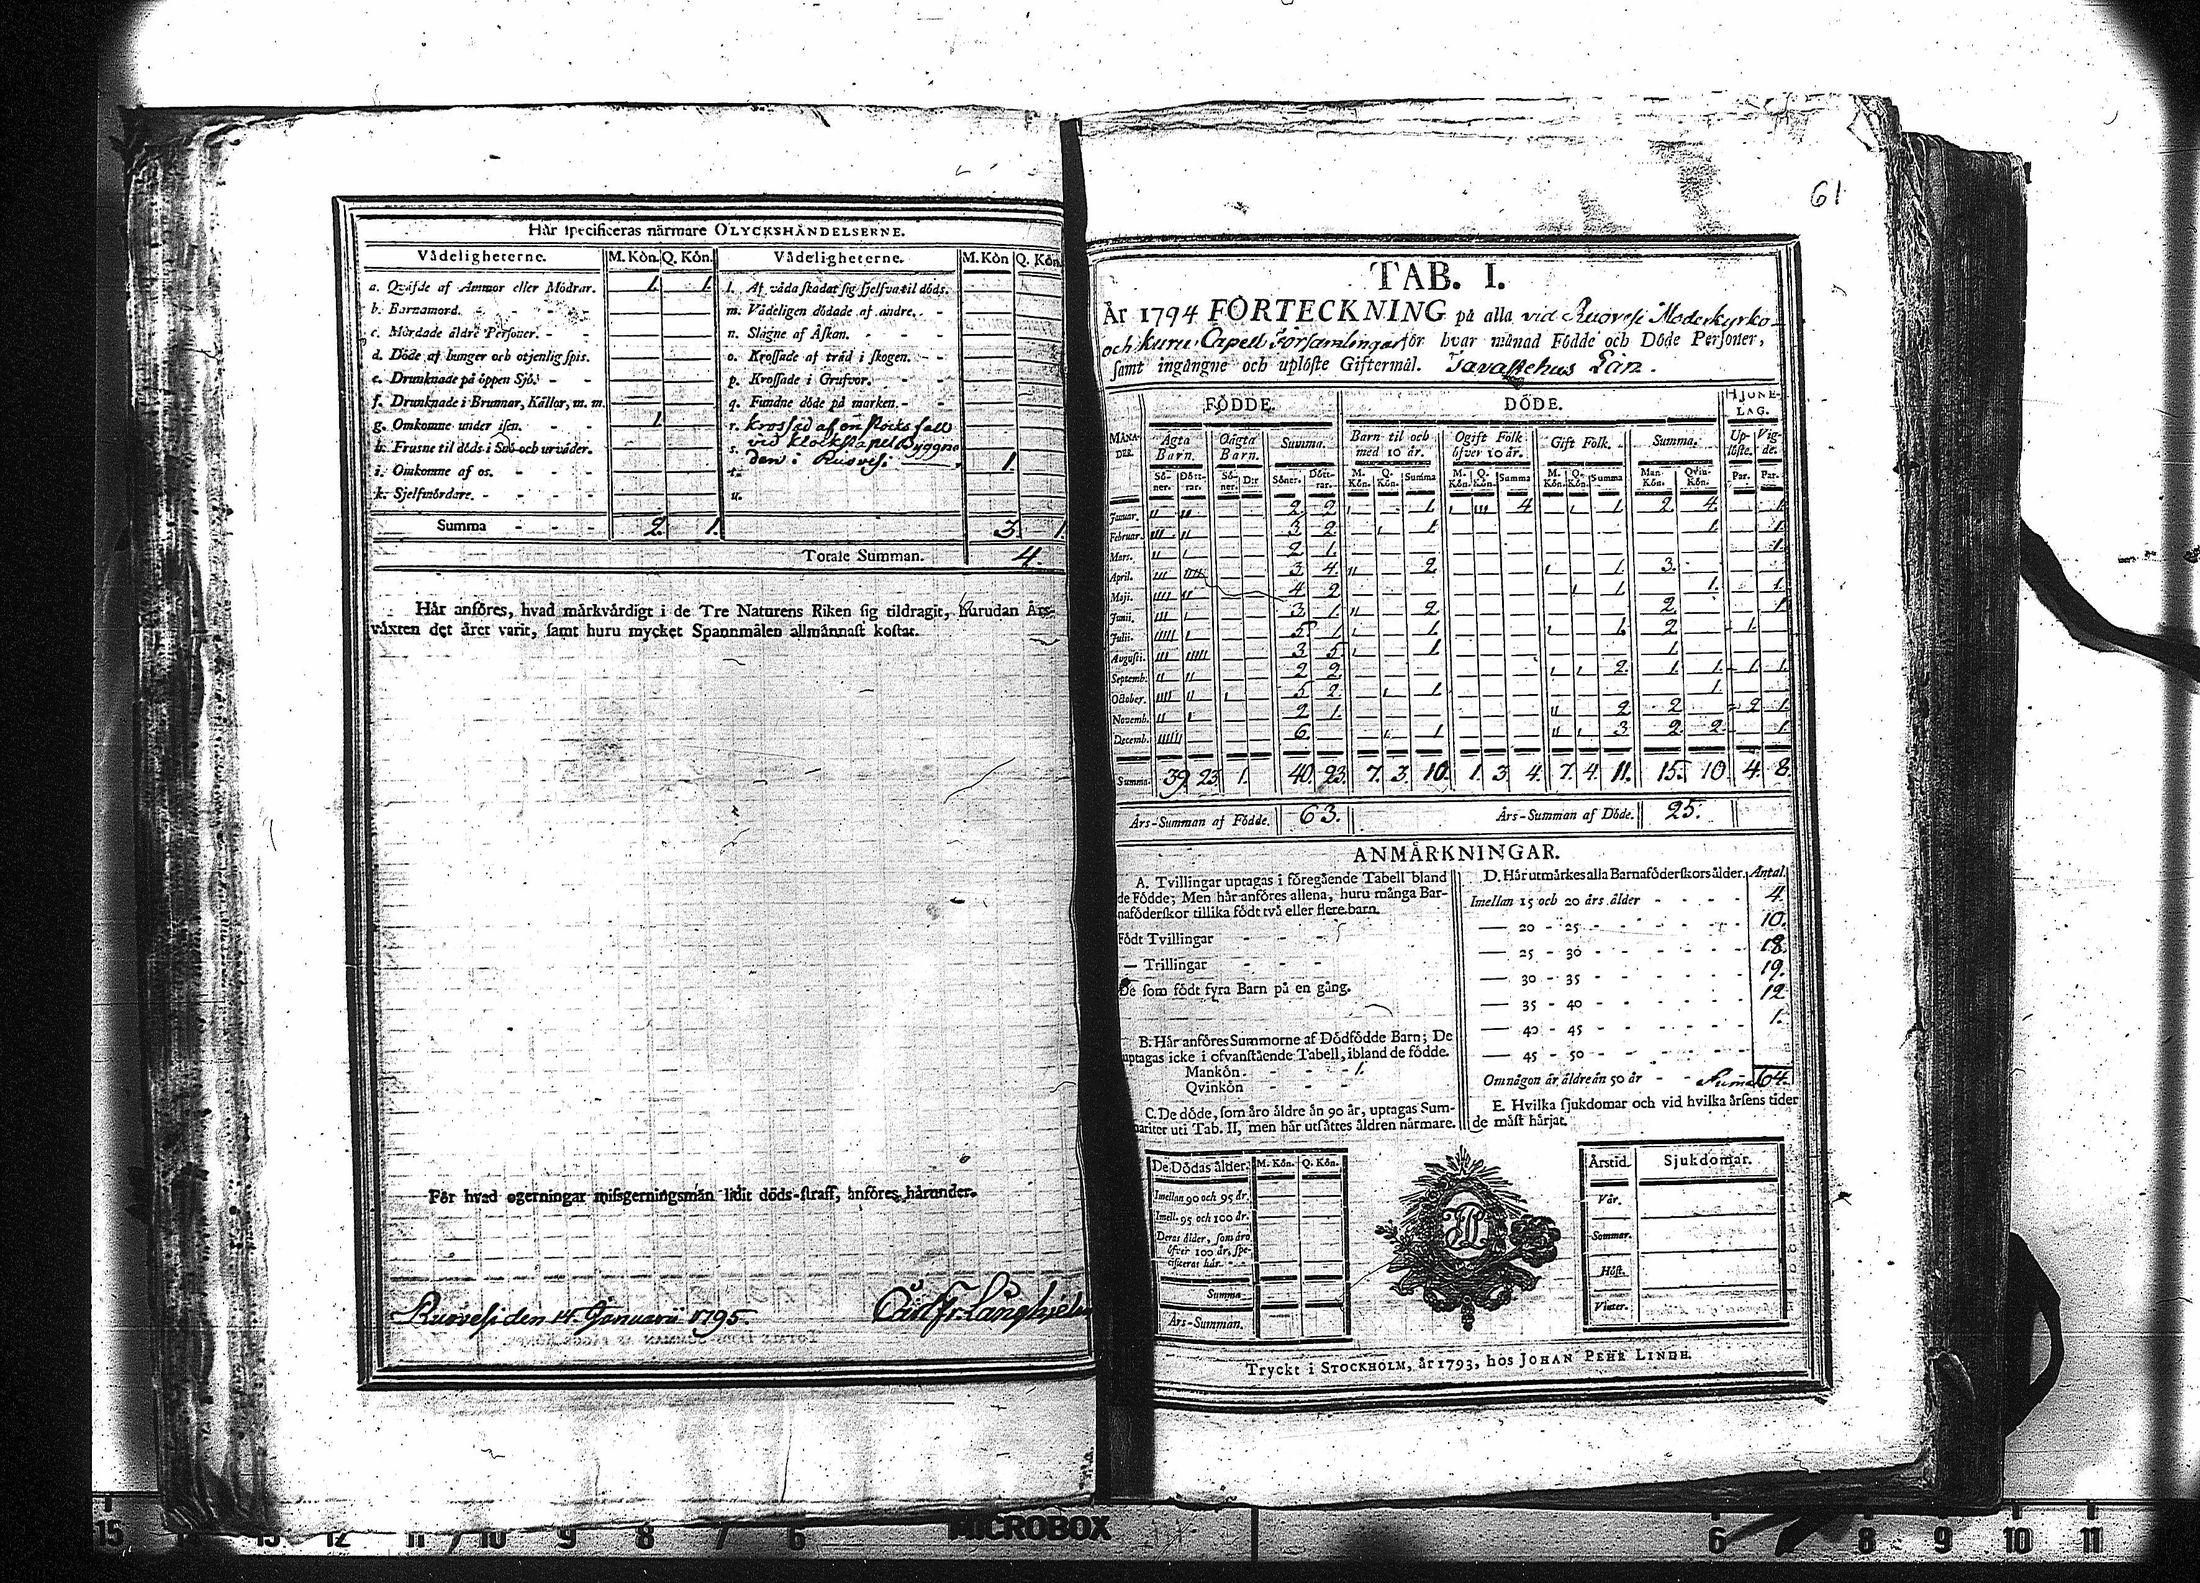 Här specificeras närmare OLYCKSHÄNDELSERNE.
Vådeligheterne. M. Kön. Q. Kön. Vådeligheterne. M. Kön Q. Kön.
a. Qväfde af Ammor eller Mödrar. 1. 1. l. Af våda skadat sig sjelfva til döds.
b. Barnamord. - - - m. Vådeligen dödade af andre. -
c. Mördade äldre Personer. - - n. Slagne af Åskan. - -
d. Döde af hunger och otjenlig spis. o. Krossade af träd i skogen. - -
e. Drunknade på öppen Sjö. - - p. Krossade i Grufvor. - -
f. Drunknade i Brunnar, Källor, m. m. q. Fundne döde på marken. - -
g. Omkomne under isen. - - 1. r. krossad af en stocks fall
h. Frusne til döds i Snö och urväder. s. vid klockstapels Byggna
i. Omkomne af os. - - - t. den i Ruovesi 1.
k. Sjelfmördare. - - - - u.
Summa - - - 2. 1. 3. 1.
Totale Summan. 4.
Här anföres, hvad märkvärdigt i de Tre Naturens Riken sig tildragit, hurudan Års-
växten det året varit, samt huru mycket Spannmålen allmännast kostat.
För hvad ogerningar missgerningsmän lidit döds-straff, anföres härunder.
Ruovesi den 14. Januarii 1795.
61
TAB. I.
År 1794 FÖRTECKNING på alla vid Ruovesi Moderkyrko
och Kuru Capell Församlingar för hvar månad Födde och Döde Personer,
samt ingångne och uplöste Giftermål. Tavastehus Län.
FÖDDE. DÖDE. HJONE-LAG.
MÅNA-DER. Ägta Barn. Oägta Barn. Summa. Barn til och med 10 år. Ogift Folk öfver 10 år. Gift Folk. Summa. Up-löste. Vig-de.
Sö-ner. Dött-rar. Sö-ner. D:r Söner. Dött-rar. M. Kön. Q. Kön. Summa M. Kön. Q. Kön. Summa M. Kön. Q. Kön. Summa Man-Kön. Qvin-Kön. Par. Par.
Januar. 2. 2. 1. 4. 1. 2. 4. 1.
Februar. 3. 2. 1. 1. 1.
Mars. 2. 1. 1.
April. 3. 4. 2. 1. 3.
Maji. 4. 2. 1. 1. 1.
Junii. 3. 1. 2. 2. 1.
Julii. 5. 1. 1. 1. 2. 1.
Augusti. 3. 5. 1. 1.
Septemb. 2. 2. 2. 1. 1. 1. 1.
October. 5. 2. 1. 1.
Novemb. 2. 1. 2. 2. 2. 1.
Decemb. 6. 1. 3. 2. 2. 1.
Summa. 39. 23. 1. 40. 23. 7. 3. 10. 1. 3. 4. 7. 4. 11. 15. 10. 4. 8.
Års-Summan af Födde. 63. Års-Summan af Döde. 25.
ANMÄRKNINGAR.
A. Tvillingar uptagas i föregående Tabell bland
de Födde; Men här anföres allena, huru många Bar-
naföderskor tillika födt två eller flere barn.
Födt Tvillingar - - -
— Trillingar - - -
De som födt fyra Barn på en gång.
B. Här anföres Summorne af Dödfödde Barn; De
uptagas icke i ofvanstående Tabell, ibland de födde.
Mankön - - - - 1.
Qvinkön - - -
C. De döde, som äro äldre än 90 år, uptagas Sum-
mariter uti Tab. II, men här utsättes åldren närmare.
D. Här utmärkes alla Barnaföderskors ålder. Antal.
Imellan 15 och 20 års ålder - - - - 4.
— 20 - 25 - - - - - - 10.
— 25 - 30 - - - - - - 18.
— 30 - 35 - - - - - - 19.
— 35 - 40 - - - - - - 12
— 40 - 45 - - - - - - 1.
— 45 - 50 - - - - - -
Om någon är äldre än 50 år - - Suma 64.
E. Hvilka sjukdomar och vid hvilka årsens tider
de mäst härjat.
De Dödas ålder. M. Kön. Q. Kön.
Imellan 90 och 95 år.
Imell. 95 och 100 år.
Deras ålder, som äro
öfver 100 år, spe-
cificeras här. - -
Summa
Års-Summan.
Årstid. Sjukdomar.
Vår.
Sommar.
Höst.
Vinter.
Tryckt i STOCKHOLM, år 1793, hos JOHAN PEHR LINDH.
15 13 12 11 10 9 8 7 6 MICROBOX 6 8 9 10 11